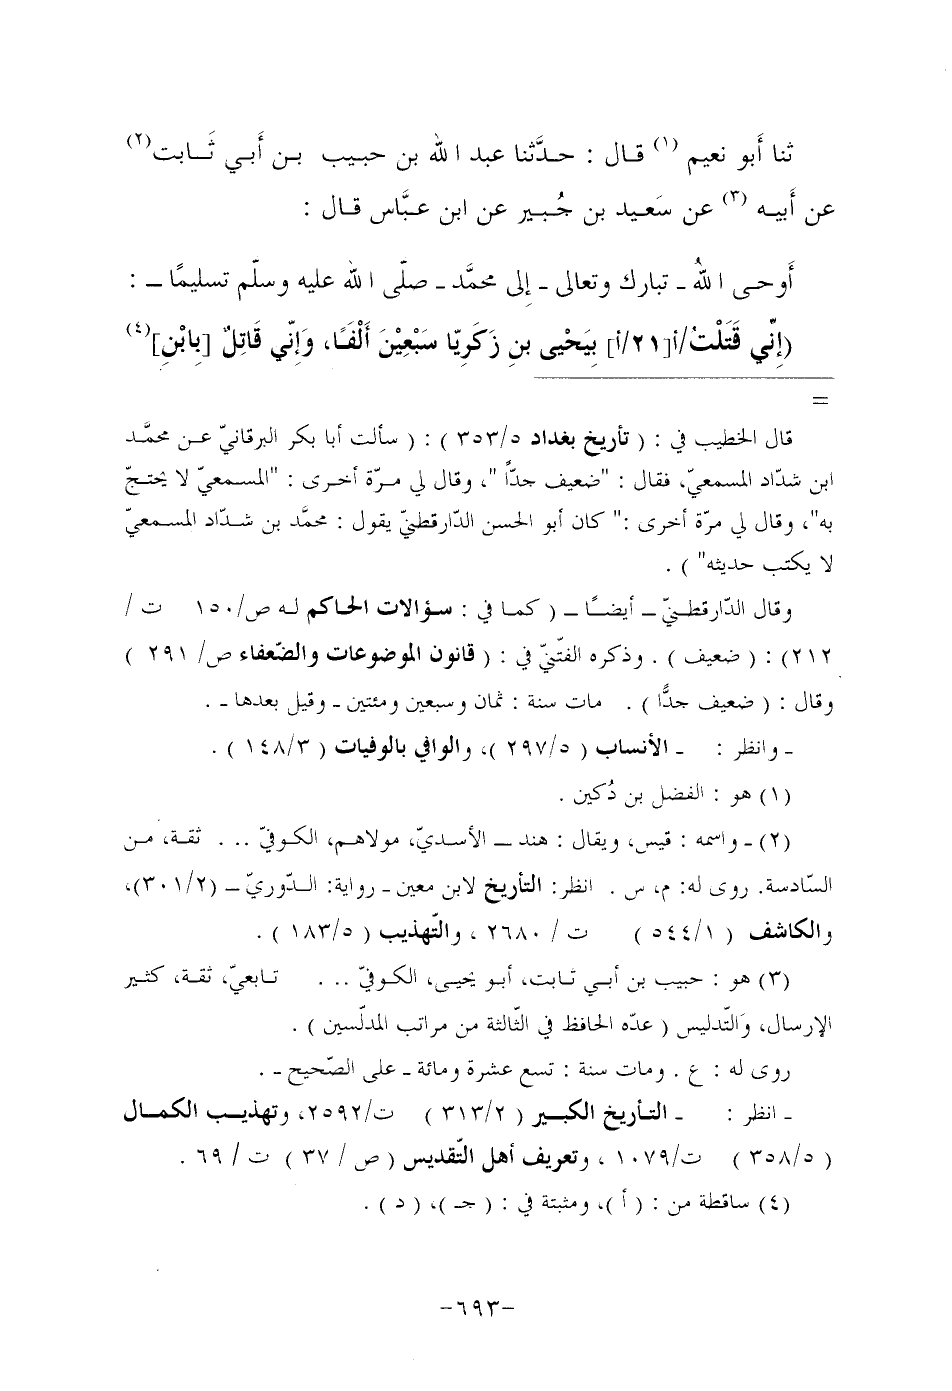 ثنا أَبو نعيم (١) قـال : حـدَّثنا عبد الله بن حبيب بـن أَبـي ثَـابت(٢)
عن أَبيـه (٣) عن سَعيـد بن جُبير عن ابن عبَّاس قـال :
أَوحـى اللهُ ـ تبارك وتعالى ـ إِلى محمَّد ـ صلّى الله عليه وسلّم تسليمًا ـ :
(إِنِّي قَتَلْتُ/أ[٢١/أ] بِيَحْيى بنِ زَكَرِيّا سَبْعِيْنَ أَلْفًا، وَإِنِّي قَاتِلٌ [بابْنِ](٤)
=
قال الخطيب في : ( تأريخ بغداد ٣٥٣/٥ ) : ( سألت أبا بكر البرقانيّ عـن محمَّد
ابن شدّاد المسمعيّ، فقال : "ضعيف جدًّا "، وقال لي مـرّة أخـرى : "المسـمعيّ لا يحتـجّ
به"، وقال لي مرّة أخرى :" كان أبو الحسن الدّارقطنيّ يقول : محمَّد بن شـدّاد المسمعيّ
لا يكتب حديثه" ) .
وقال الدّارقطـنيّ ـ أيضـًا ـ ( كمـا في : سـؤالات الحـاكم لـه ص/١٥٠ ت /
٢١٢) : ( ضعيف ) . وذكره الفتّنيّ في : ( قانون الموضوعات والضّعفاء ص/ ٢٩١ )
وقال : ( ضعيف جدًّا ) . مات سنة : ثمان وسبعين ومئتين ـ وقيل بعدها ـ .
ـ وانظر : ـ الأنساب ( ٢٩٧/٥ )، والوافي بالوفيات ( ١٤٨/٣ ) .
(١) هو : الفضل بن دُكين .
(٢) ـ واسمه : قيس، ويقال : هند ـ الأسـديّ، مولاهـم، الكـوفيّ . . . ثقـة، مـن
السّادسة. روى له: م، س . انظر: التأريخ لابن معين ـ رواية: الـدّوريّ ـ (٣٠١/٢)،
والكاشف ( ٥٤٤/١ ) ت / ٢٦٨٠ ، والتّهذيب ( ١٨٣/٥ ) .
(٣) هو : حبيب بن أبـي ثـابت، أبـو يحيـى، الكـوفيّ . . . تـابعيّ، ثقـة، كثـير
الإرسال، والتّدليس ( عدّه الحافظ في الثّالثة من مراتب المدلّسين ) .
روى له : ع . ومات سنة : تسع عشرة ومائة ـ على الصّحيح ـ .
ـ انظر : ـ التـأريخ الكبـير ( ٣١٣/٢ ) ت/٢٥٩٢، وتهذيـب الكمـال
( ٣٥٨/٥ ) ت/١٠٧٩ ، وتعريف أهل التّقديس ( ص / ٣٧ ) ت / ٦٩ .
(٤) ساقطة من : ( أ )، ومثبتة في : ( جـ )، ( د ) .
-٦٩٣-